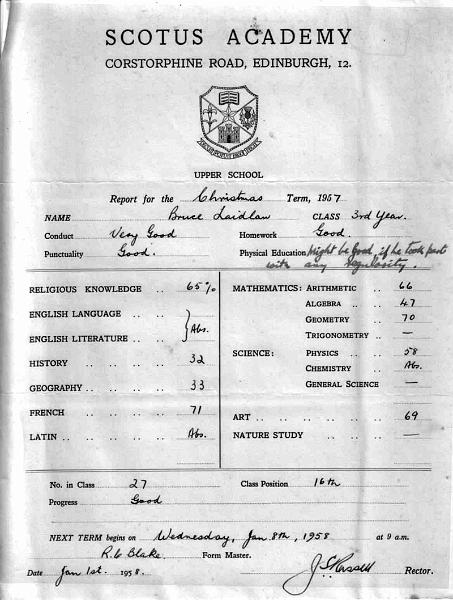 SCOTUS ACADEMY
CORSTORPHINE ROAD, EDINBURGH, 12.
UPPER SCHOOL
Report for the Christmas Term, 1957
NAME Bruce Laidlaw CLASS 3rd Year.
Conduct Very Good Homework Good.
Punctuality Good. Physical Education Might be Good if he took part
with any regularity.
RELIGIOUS KNOWLEDGE .. 65% MATHEMATICS: ARITHMETIC .. 66
ENGLISH LANGUAGE .. .. ALGEBRA .. .. 47
Abs. GEOMETRY .. 70
ENGLISH LITERATURE .. .. TRIGONOMETRY .. —
HISTORY .. .. .. .. 32 SCIENCE: PHYSICS .. .. 58
CHEMISTRY .. Abs.
GEOGRAPHY .. .. .. 33 GENERAL SCIENCE —
FRENCH .. .. .. .. 71 ART .. .. .. .. .. 69
LATIN .. .. .. .. Abs. NATURE STUDY .. .. .. —
No. in Class 27 Class Position 16th
Progress Good
NEXT TERM begins on Wednesday, Jan 8th, 1958 at 9 a.m.
Blake. Form Master.
Date Jan 1st 1958. Rector.